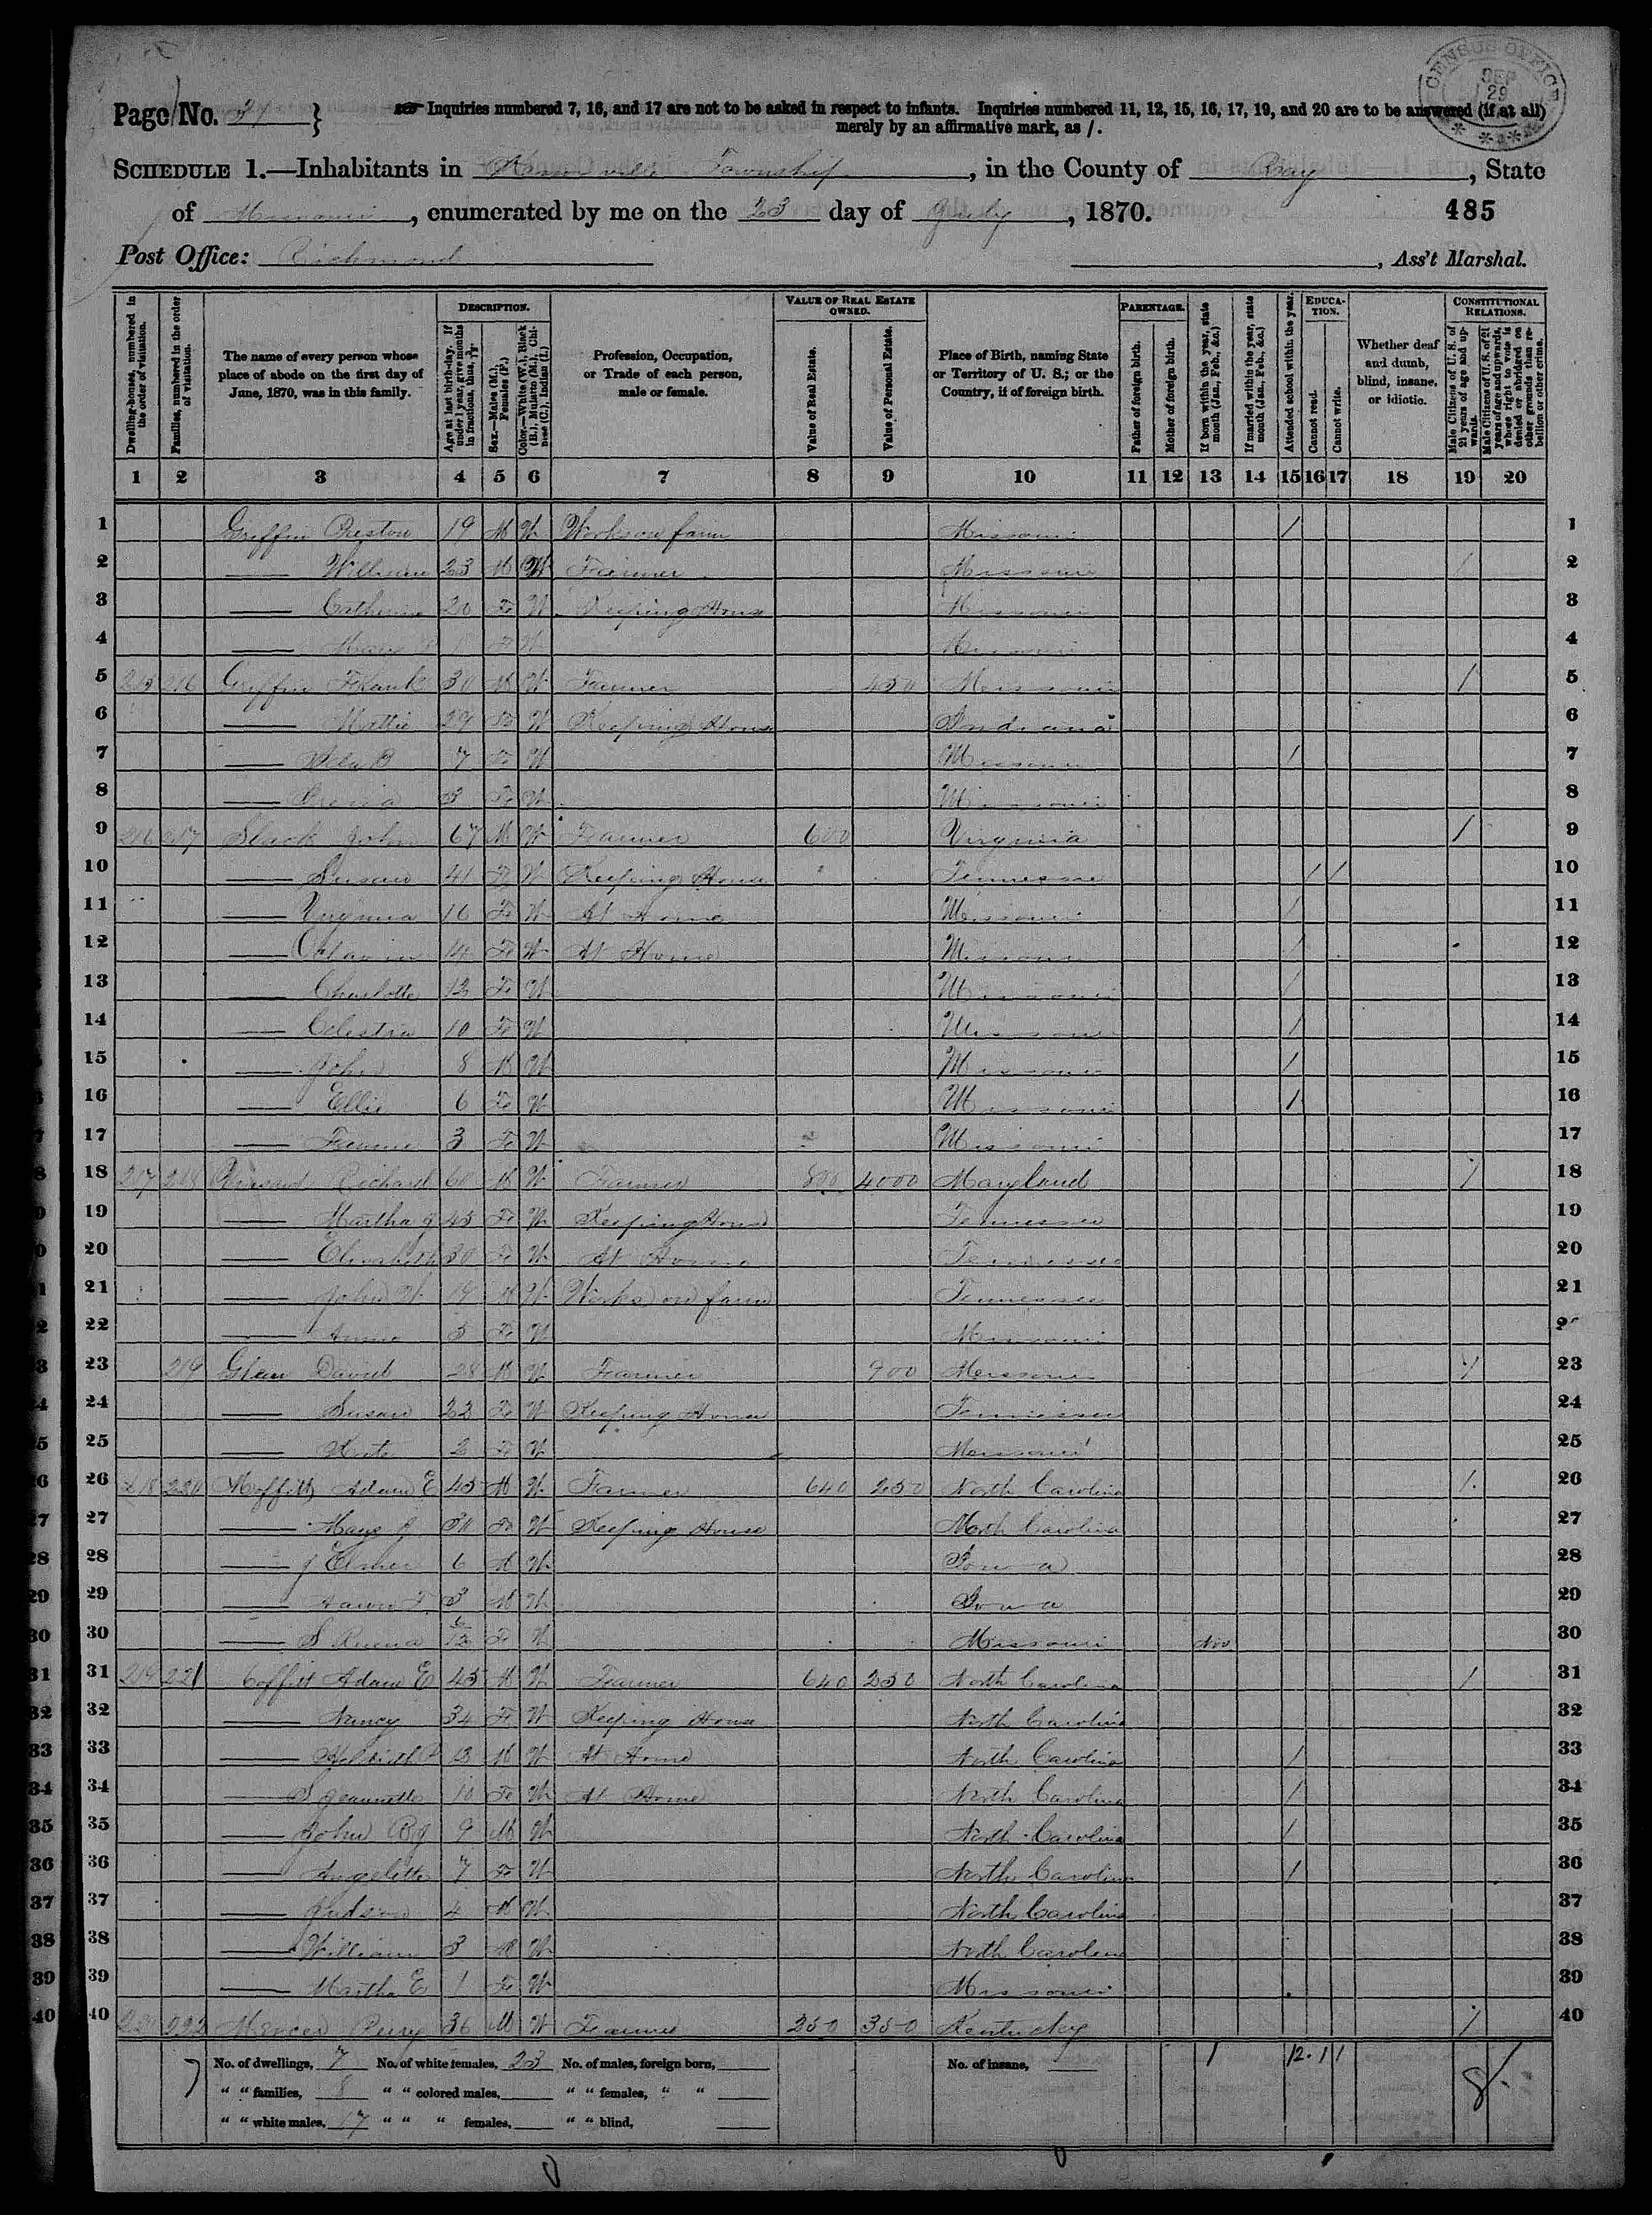 CENSUS OFFICE SEP 29
Page No. 31 } Inquiries numbered 7, 16, and 17 are not to be asked in respect to infants. Inquiries numbered 11, 12, 15, 16, 17, 19, and 20 are to be answered (if at all)
merely by an affirmative mark, as /.
SCHEDULE 1.—Inhabitants in Township, in the County of Ray, State
of Missouri, enumerated by me on the 23 day of July, 1870. 485
Post Office: Richmond , Ass't Marshal.
Dwelling-houses, numbered in the order of visitation.
Families, numbered in the order of visitation.
The name of every person whose place of abode on the first day of June, 1870, was in this family.
DESCRIPTION.
Age at last birth-day. If under 1 year, give months in fractions, thus, 3/12
Sex.—Males (M.), Females (F.)
Color.—White (W.), Black (B.), Mulatto (M.), Chinese (C.), Indian (I.)
Profession, Occupation, or Trade of each person, male or female.
VALUE OF REAL ESTATE OWNED.
Value of Real Estate.
Value of Personal Estate.
Place of Birth, naming State or Territory of U. S.; or the Country, if of foreign birth.
PARENTAGE.
Father of foreign birth.
Mother of foreign birth.
If born within the year, state month (Jan., Feb., &c.)
If married within the year, state month (Jan., Feb., &c.)
Attended school within the year.
EDUCATION.
Cannot read.
Cannot write.
Whether deaf and dumb, blind, insane, or idiotic.
CONSTITUTIONAL RELATIONS.
Male Citizens of U. S. of 21 years of age and upwards.
Male Citizens of U. S. of 21 years of age and upwards, whose right to vote is denied or abridged on other grounds than rebellion or other crime.
1 2 3 4 5 6 7 8 9 10 11 12 13 14 15 16 17 18 19 20
1 Griffin Preston 19 M W Works on farm Missouri / 1
2 —— William 23 M W Farmer Missouri / 2
3 —— Catherine 20 Fe W Keeping House Missouri 3
4 —— Mary Fe W Missouri 4
5 215 216 Griffin Frank 30 M W Farmer 450 Missouri / 5
6 —— Mattie 29 Fe W Keeping House Indiana 6
7 —— 7 Fe W Missouri / 7
8 —— 3 Fe W Missouri 8
9 216 217 Slack John 67 M W Farmer 600 Virginia / 9
10 —— Susan 41 Fe W Keeping House Tennessee / / 10
11 —— Virginia 16 Fe W At Home Missouri / 11
12 —— Octavia 14 Fe W At Home Missouri / 12
13 —— Charlotte 12 Fe W Missouri / 13
14 —— Celestia 10 Fe W Missouri / 14
15 —— John 8 M W Missouri / 15
16 —— Ellie 6 Fe W Missouri / 16
17 —— 3 Fe W Missouri 17
18 217 218 Richard 60 M W Farmer 800 4000 Maryland / 18
19 —— Martha J 45 Fe W Keeping House Tennessee 19
20 —— Elizabeth 30 Fe W At Home Tennessee 20
21 —— John W 19 M W Works on farm Tennessee 21
22 —— Annie 5 Fe W Missouri 22
23 219 Glenn David 28 M W Farmer 900 Missouri / 23
24 —— Susan 22 Fe W Keeping House Tennessee 24
25 —— Kate 2 Fe W Missouri 25
26 218 220 Moffitt Adam E 45 M W Farmer 640 250 North Carolina / 26
27 —— Mary J 30 Fe W Keeping House North Carolina 27
28 —— J Elmer 6 M W Iowa 28
29 —— 3 M W Iowa 29
30 —— S Ruena 6/12 Fe W Missouri Nov 30
31 219 221 Coffitt Adam E 45 M W Farmer 640 250 North Carolina / 31
32 —— Nancy 34 Fe W Keeping House North Carolina 32
33 —— 13 M W At Home North Carolina / 33
34 —— S Jeannette 10 Fe W At Home North Carolina / 34
35 —— John B J 9 M W North Carolina / 35
36 —— Angeletta 7 Fe W North Carolina / 36
37 —— Judson 4 M W North Carolina 37
38 —— William 3 M W North Carolina 38
39 —— Martha E 1 Fe W Missouri 39
40 222 Mercer Perry 36 M W Farmer 250 350 Kentucky / 40
No. of dwellings, 7 No. of white females, 23 No. of males, foreign born, No. of insane, 1 12 1 1
" " families, 8 " " colored males, " " females, " " 8
" " white males, 17 " " " females, " " blind,